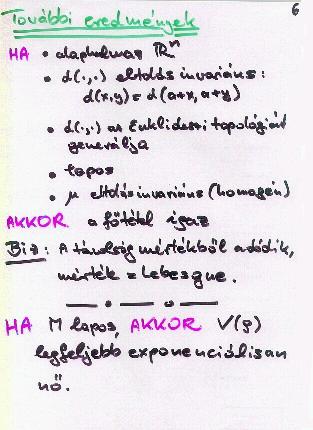 További eredmények
6
HA • alaphalmaz ℝⁿ
• d(.,.) eltolás invariáns:
d(x,y) = d(a+x, a+y)
• d(.,.) az Euklideszi topológiát
generálja
• lapos
• μ eltolásinvariáns (homogén)
AKKOR a főtétel igaz
Biz: A távolság mértékből adódik,
mérték = Lebesgue.
HA M lapos, AKKOR V(ρ)
legfeljebb exponenciálisan
nő.